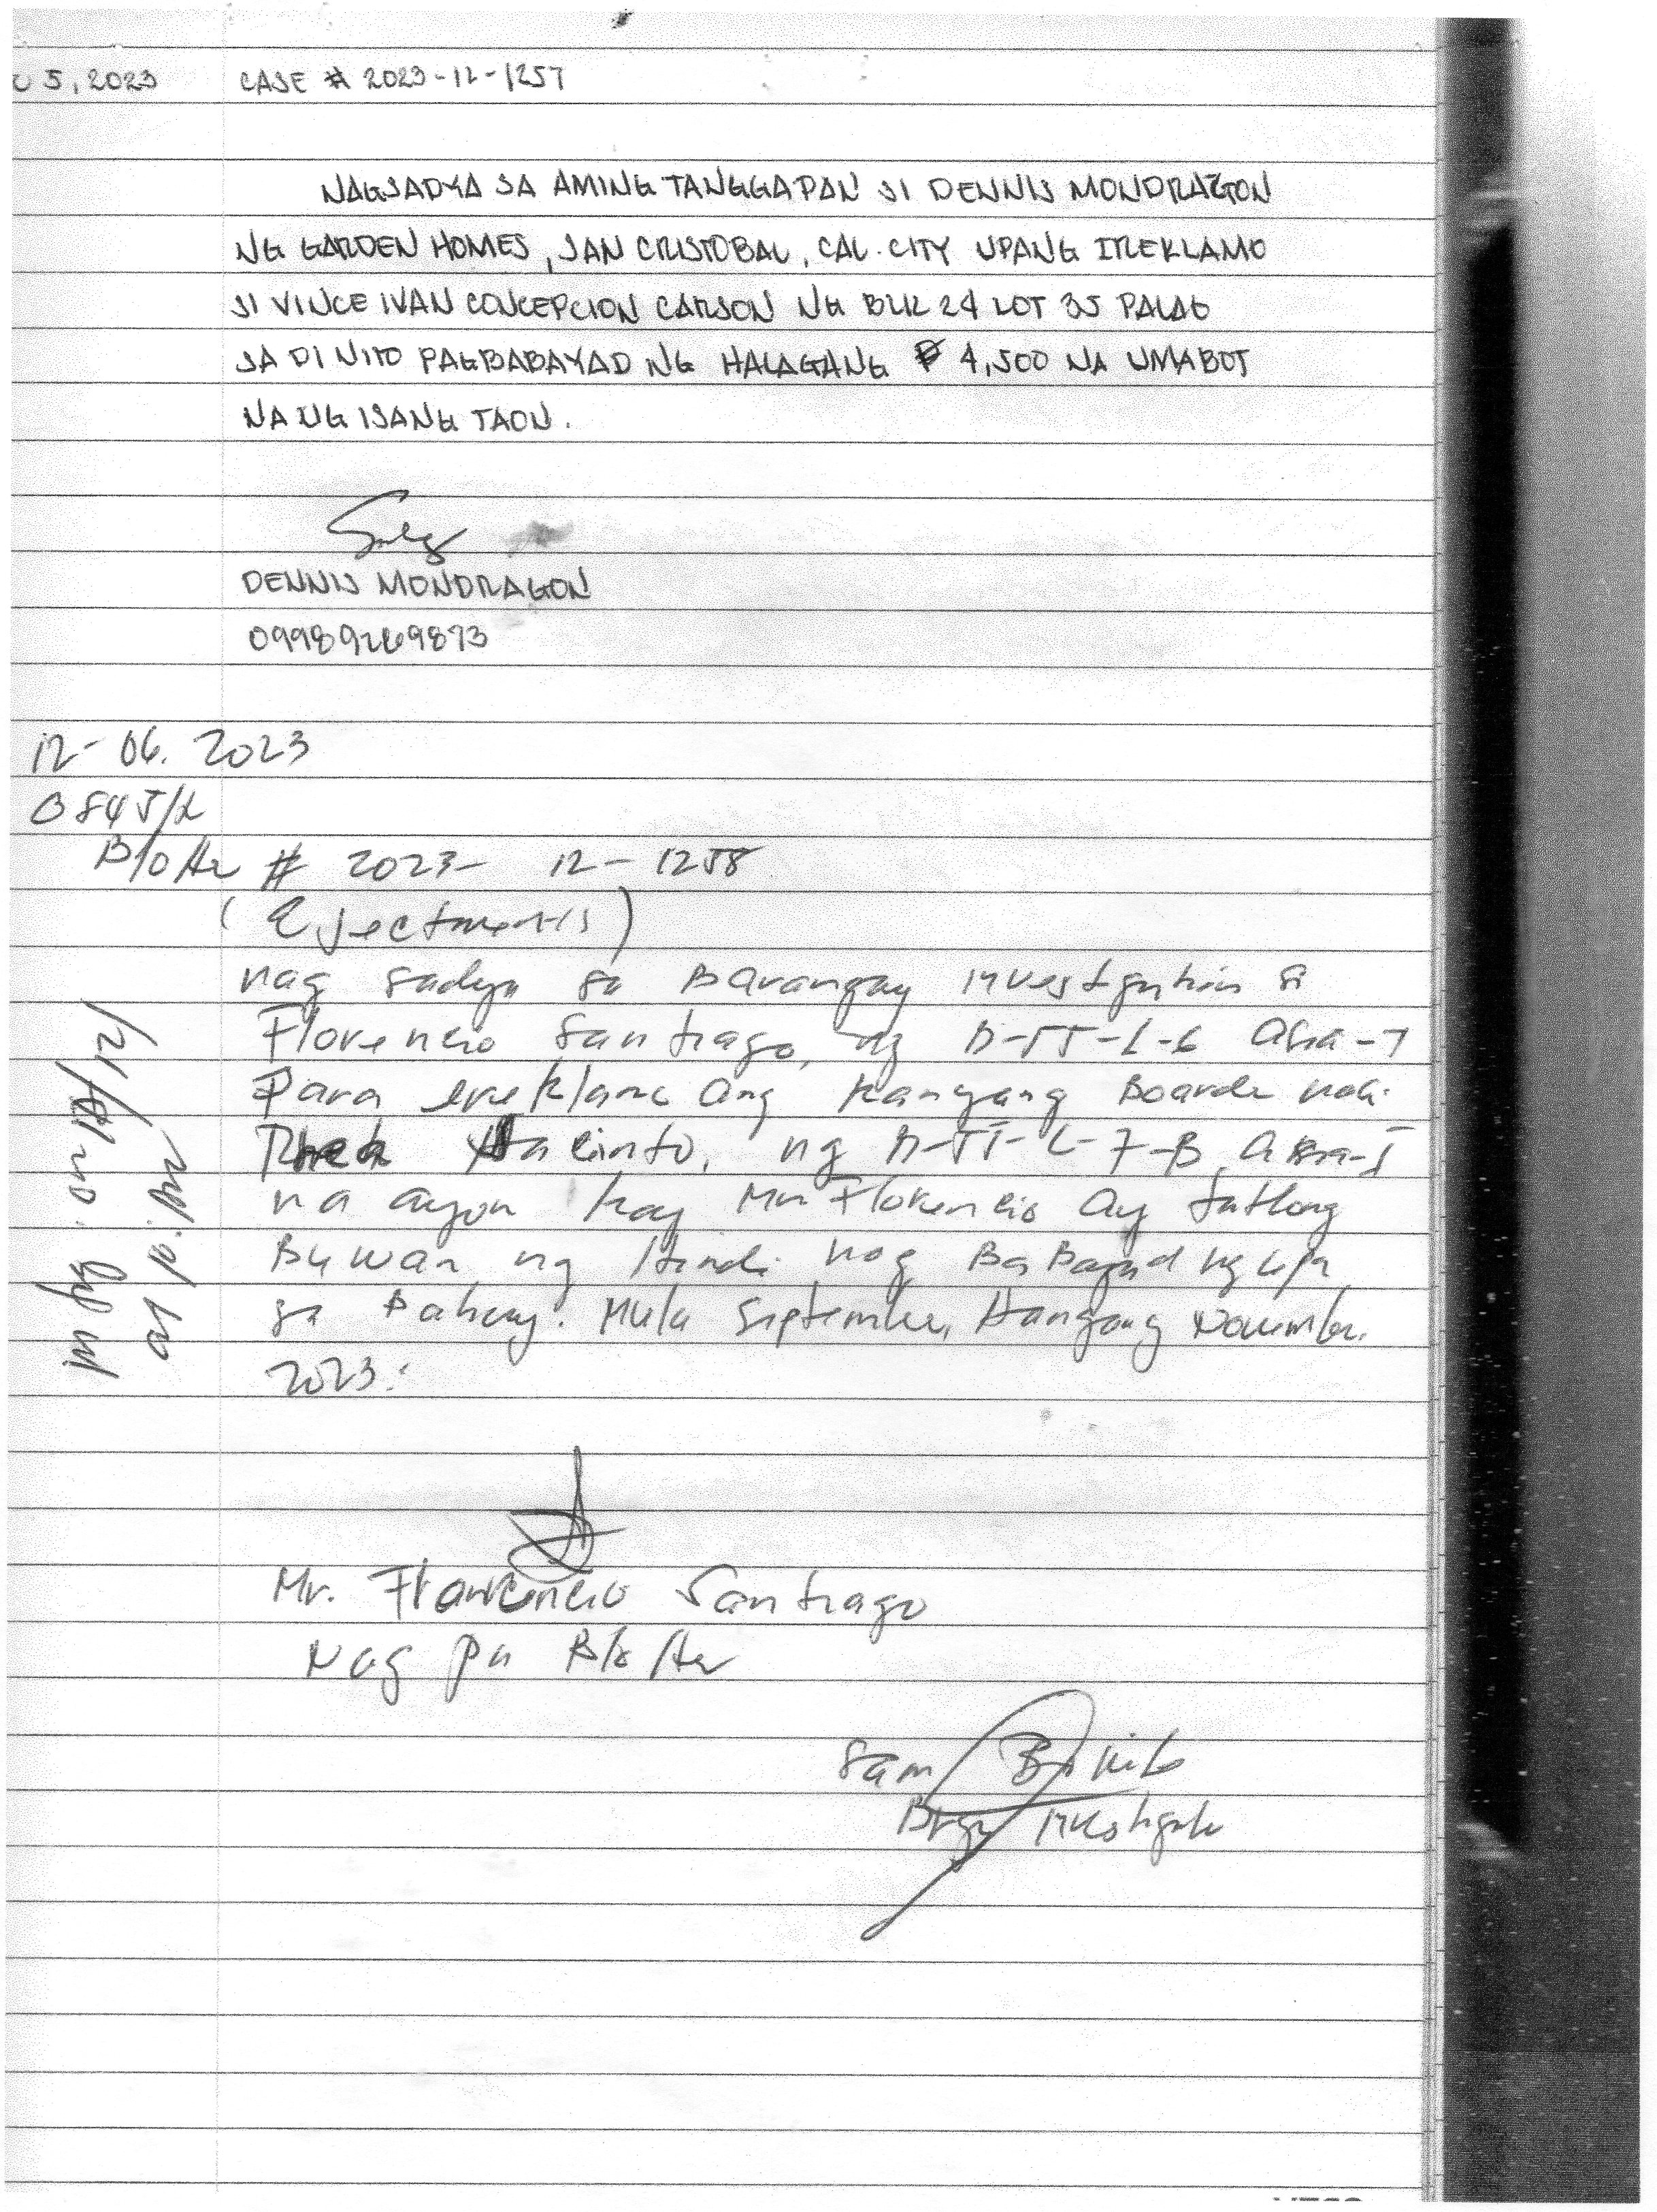 5, 2023 CASE # 2023-12-1257
NAGSADYA SA AMING TANGGAPAN SI DENNIS MONDRAGON
NG GARDEN HOMES, SAN CRISTOBAL, CAL. CITY UPANG IREKLAMO
SI VINCE IVAN CONCEPCION CARSON NG BLK 24 LOT 35 PALAO
SA DI NITO PAGBABAYAD NG HALAGANG ₱ 4,500 NA UMABOT
NA NG ISANG TAON.
DENNIS MONDRAGON
09989269873
12-06. 2023
0845/H
Blotter # 2023- 12-1258
(Ejectments)
nag sadya sa Barangay investigation si
Florencio Santiago, ng B-55-L-6 Asia-1
Para ereklamo ang kanyang Boarder na si
Jacinto, ng B-55-L-7-B, Asia-1
na ayon kay Mr Florencio Ay tatlong
Buwan ng Hindi nag BaBayad ng upa
sa Bahay. Mula September, Hangang November
2023.
Mr. Florencio Santiago
Nag pa Blotter
Sam
Brgy Investigator